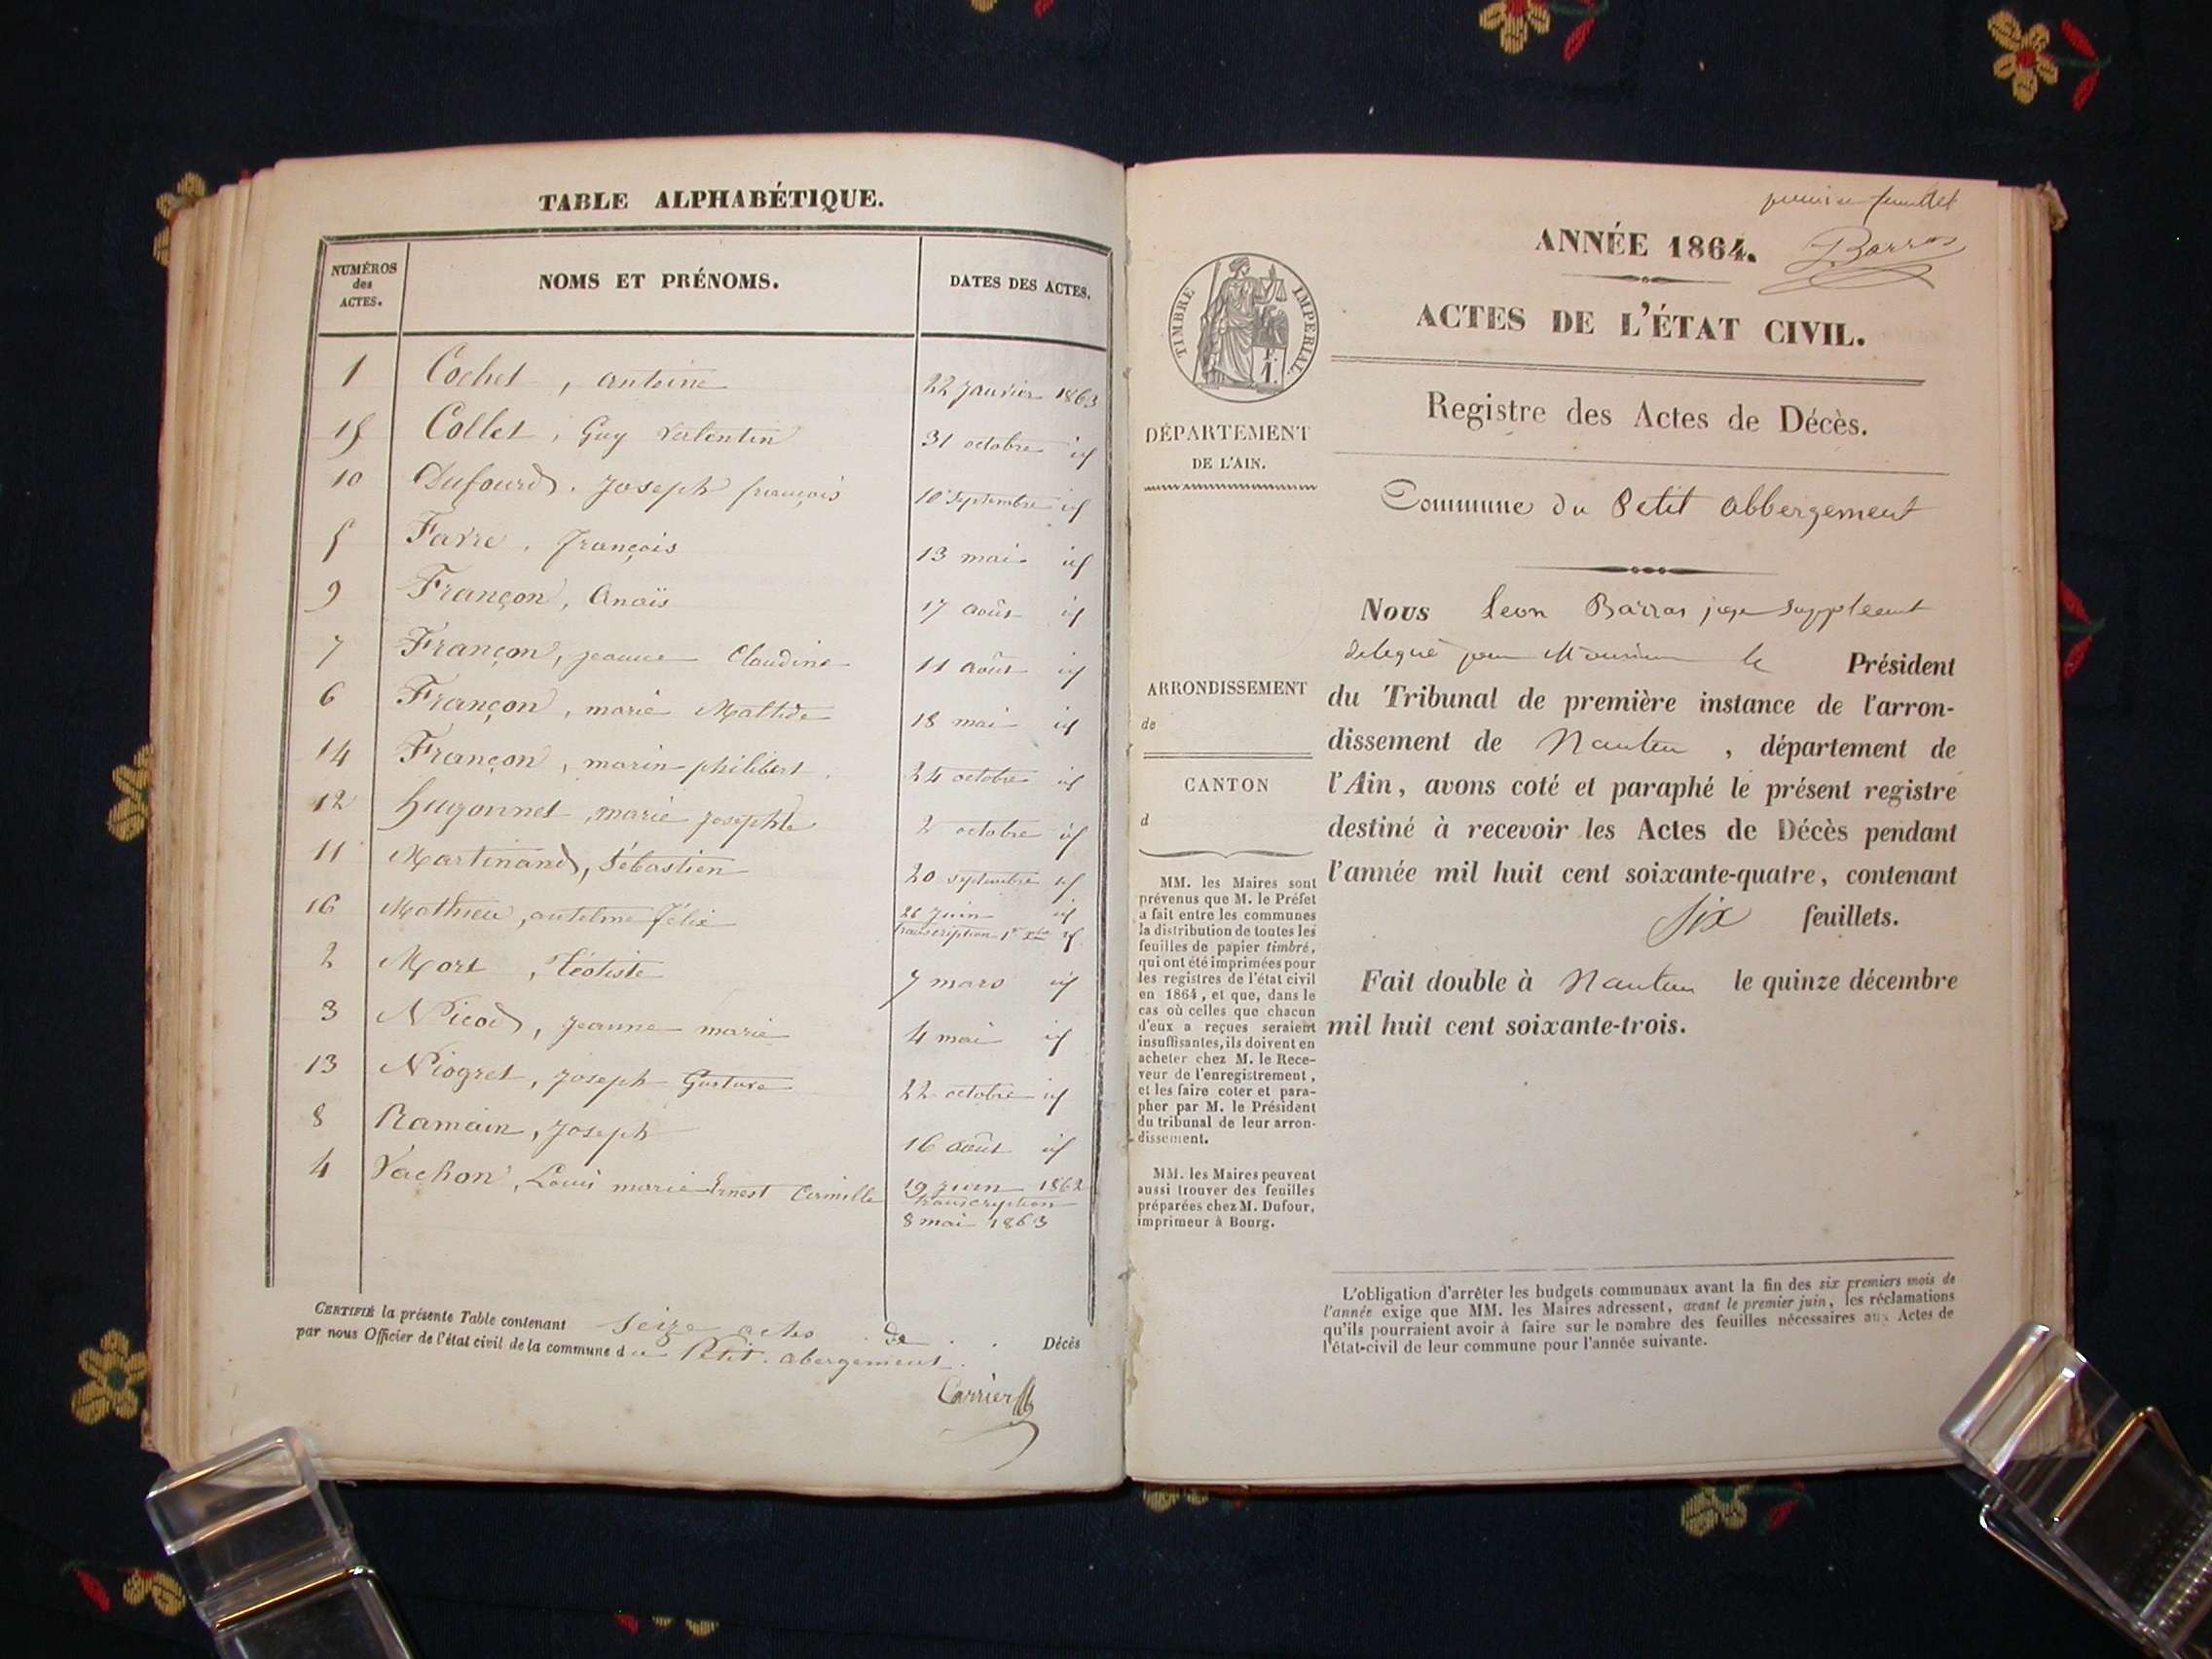 TABLE ALPHABÉTIQUE.
NUMÉROS
des
ACTES.
NOMS ET PRÉNOMS.
DATES DES ACTES.
1 Cochet, antoine 22 Janvier 1863
15 Collet, Guy Valentin 31 octobre id
10 Dufourd, Joseph françois 10 Septembre id
5 Favre, François 13 mai id
9 Françon, Anaïs 17 août id
7 Françon, jeanne Claudine 11 août id
6 Françon, marie Maltide 18 mai id
14 Françon, marin philibert 24 octobre id
12 hugonnet, marie josephte 2 octobre id
11 Martinand, Sébastien 20 septembre id
16 Mathieu, antelme félix 26 Juin id
transcription 1er Xbre id
2 Mort, Téotiste 7 mars id
3 Nicod, jeanne marie 4 mai id
13 Niogret, joseph Gustave 22 octobre id
8 Ramain, Joseph 16 août id
4 Vachon, Louis marie Ernest Camille 19 juin 1862
transcription
8 mai 1863
CERTIFIÉ la présente Table contenant seize actes de Décès
par nous Officier de l'état civil de la commune du Petit abergement.
Carrier
premier feuillet
ANNÉE 1864.
L Barras
ACTES DE L'ÉTAT CIVIL.
Registre des Actes de Décès.
TIMBRE IMPERIAL.
F.
1.
DÉPARTEMENT
DE L'AIN.
Commune du Petit abbergement
Nous Leon Barras juge suppleant
delegué par Monsieur le Président
du Tribunal de première instance de l'arron-
dissement de Nantua, département de
l'Ain, avons coté et paraphé le présent registre
destiné à recevoir les Actes de Décès pendant
l'année mil huit cent soixante-quatre, contenant
six feuillets.
Fait double à Nantua le quinze décembre
mil huit cent soixante-trois.
ARRONDISSEMENT
de
CANTON
d
MM. les Maires sont
prévenus que M. le Préfet
a fait entre les communes
la distribution de toutes les
feuilles de papier timbré,
qui ont été imprimées pour
les registres de l'état civil
en 1864, et que, dans le
cas où celles que chacun
d'eux a reçues seraient
insuffisantes, ils doivent en
acheter chez M. le Rece-
veur de l'enregistrement,
et les faire coter et para-
pher par M. le Président
du tribunal de leur arron-
dissement.
MM. les Maires peuvent
aussi trouver des feuilles
préparées chez M. Dufour,
imprimeur à Bourg.
L'obligation d'arrêter les budgets communaux avant la fin des six premiers mois de
l'année exige que MM. les Maires adressent, avant le premier juin, les réclamations
qu'ils pourraient avoir à faire sur le nombre des feuilles nécessaires aux Actes de
l'état-civil de leur commune pour l'année suivante.